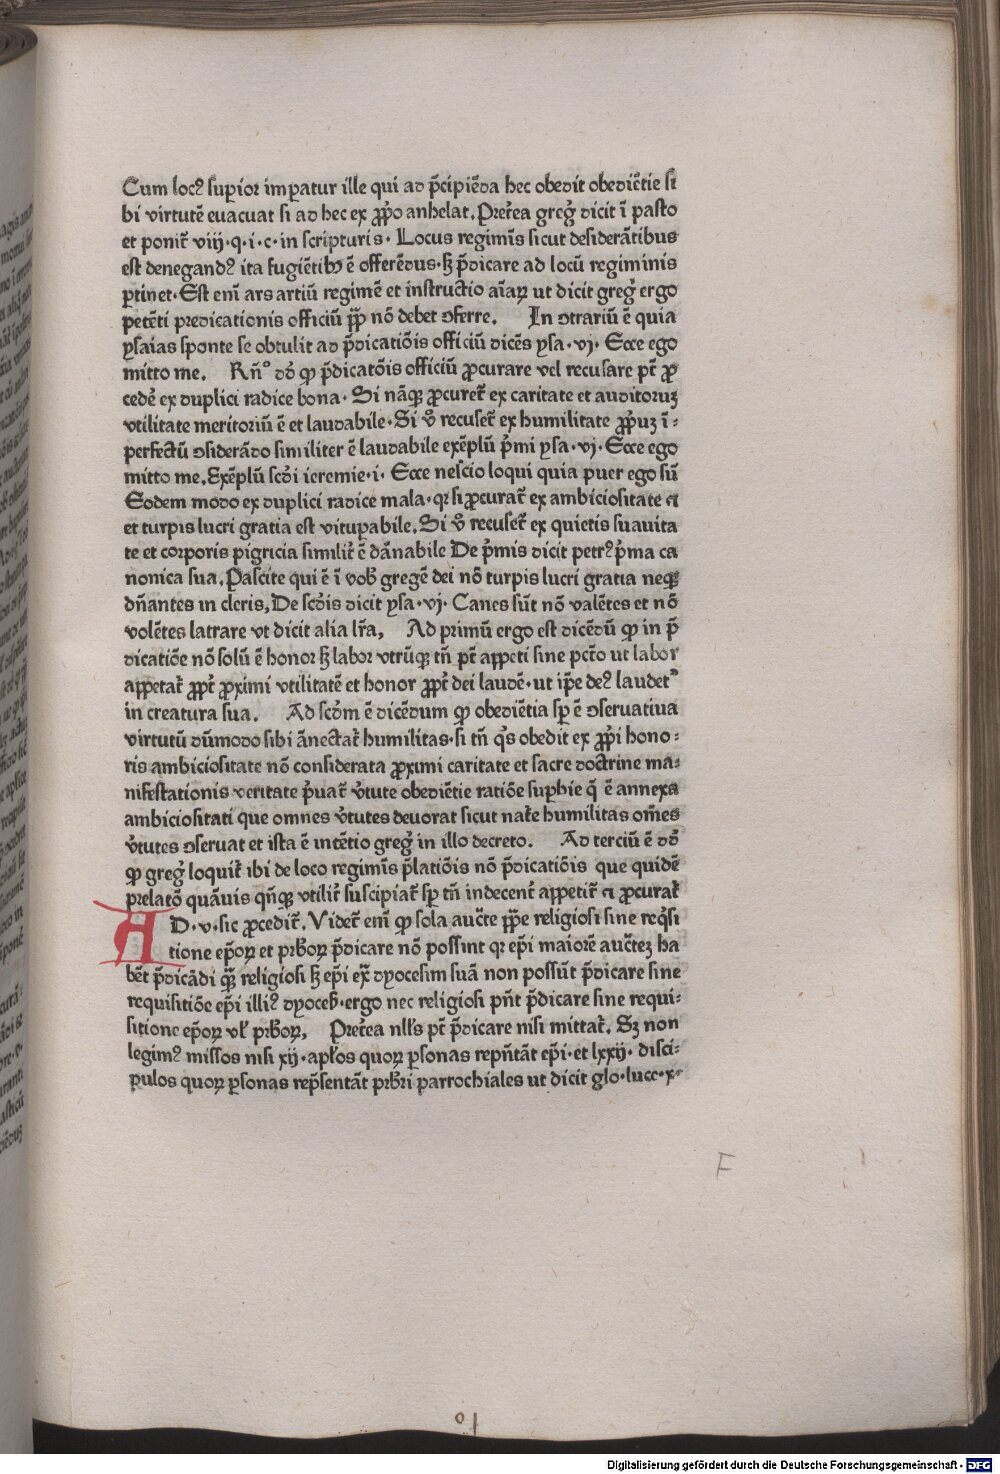 Cum locꝰ suꝑior imꝑatur ille qui ad p̄cipiēda hec obedit obediētie si
bi virtutē euacuat si ad hec ex ꝓp̄o anhelat. Pret̄ea greḡ dicit ī pasto
et ponit̄ viij·q·i·c·in scripturis· Locus regimīs sicut desiderātibus
est denegandꝰ ita fugiētibꝫ ē offerēdus·sꝫ p̄dicare ad locū regiminis
ꝑtinet·Est enī ars artiū regimē et instructio aīaꝝ ut dicit greḡ ergo
petēti predicationis officiū ꝓp̄ nō debet ꝯferre. In ꝯtrariū ē quia
ysaias sponte se obtulit ad p̄dicatiōis officiū dicēs ysa·vj· Ecce ego
mitto me. Rn̄º dō ꝙ p̄dicatōis officiū ꝓcurare vel recusare pt̄ ꝓ
cedē ex duplici radice bona· Si nāqꝫ ꝓcuret̄ ex caritate et auditoruꝫ
vtilitate meritoriū ē et laudabile·Si v̄o recuset̄ ex humilitate ꝓp̄uꝫ ī⸗
perfectū ꝯsiderādo similiter ē laudabile exēplū p̄mi ysa·vj· Ecce ego
mitto me.Exēplū scd̄i ieremie·i· Ecce nescio loqui quia puer ego sū
Eodem modo ex duplici radice mala·qꝛ si ꝓcurat̄ ex ambiciositate ꝛ
et turpis lucri gratia est vituꝑabile. Si v̄o recuset̄ ex quietis suauita
te et corporis pigricia similit̄ ē dānabile De p̄mis dicit petrꝰ p̄ma ca
nonica sua. Pascite qui ē ī vob̄ gregē dei nō turpis lucri gratia neqꝫ
dn̄antes in cleris. De scd̄is dicit ysa·vj· Canes sūt nō valētes et nō
volētes latrare vt dicit alia lr̄a, Ad primū ergo est dicēdū ꝙ in p̄
dicatiōe nō solū ē honor sꝫ labor vtrūqꝫ tn̄ pt̄ appeti sine pctō ut labor
appetat̄ ꝓpt̄ ꝓximi vtilitatē et honor ꝓpt̄ dei laudē·ut ip̄e deꝰ laudet᷑
in creatura sua. Ad scd̄m ē dicēdum ꝙ obediētia sꝑ ē ꝯseruatiua
virtutū dūmodo sibi ānectat̄ humilitas·si tn̄ qͥs obedit ex ꝓp̄i hono⸗
ris ambiciositate nō considerata ꝓximi caritate et sacre doctrine ma⸗
nifestationis veritate p̄uat̄ v̄tute obediētie ratiōe suꝑbie q̄ ē annexa
ambiciositati que omnes v̄tutes deuorat sicut nat̄e humilitas om̄es
v̄tutes ꝯseruat et ista ē intētio greḡ in illo decreto. Ad terciū ē dō
ꝙ greḡ loquit̄ ibi de loco regimīs p̄latiōis nō p̄dicatiōis que quidē
prelatō quāuis qn̄qꝫ vtilit̄ suscipiat̄ sꝑ tn̄ indecent̄ appetit̄ ꝛ ꝓcurat̄
AD·v·sic ꝓcedit̄. Videt̄ enī ꝙ sola auct̄e ꝓp̄e religiosi sine reqͥsi
tione ep̄oꝝ et prb̄oꝝ p̄dicare nō possint qꝛ ep̄i maiorē auct̄eꝫ ha
bēt p̄dicādi qꝫ̄ religiosi sꝫ ep̄i ex̄ dyocesim suā non possūt p̄dicare sine
requisitiōe ep̄i illiꝰ dyoceb̄·ergo nec religiosi pn̄t p̄dicare sine requi⸗
sitione ep̄oꝝ vl̄ prb̄oꝝ, Pret̄ea nll̄s pt̄ p̄dicare nisi mittat̄. Sꝫ non
legimꝰ missos nisi xij·apl̄os quoꝝ ꝑsonas repn̄tāt ep̄i·et lxxij· disci⸗
pulos quoꝝ ꝑsonas rep̄sentāt prb̄ri parrochiales ut dicit glo·luce·x·
F
Digitalisierung gefördert durch die Deutsche Forschungsgemeinschaft - DFG